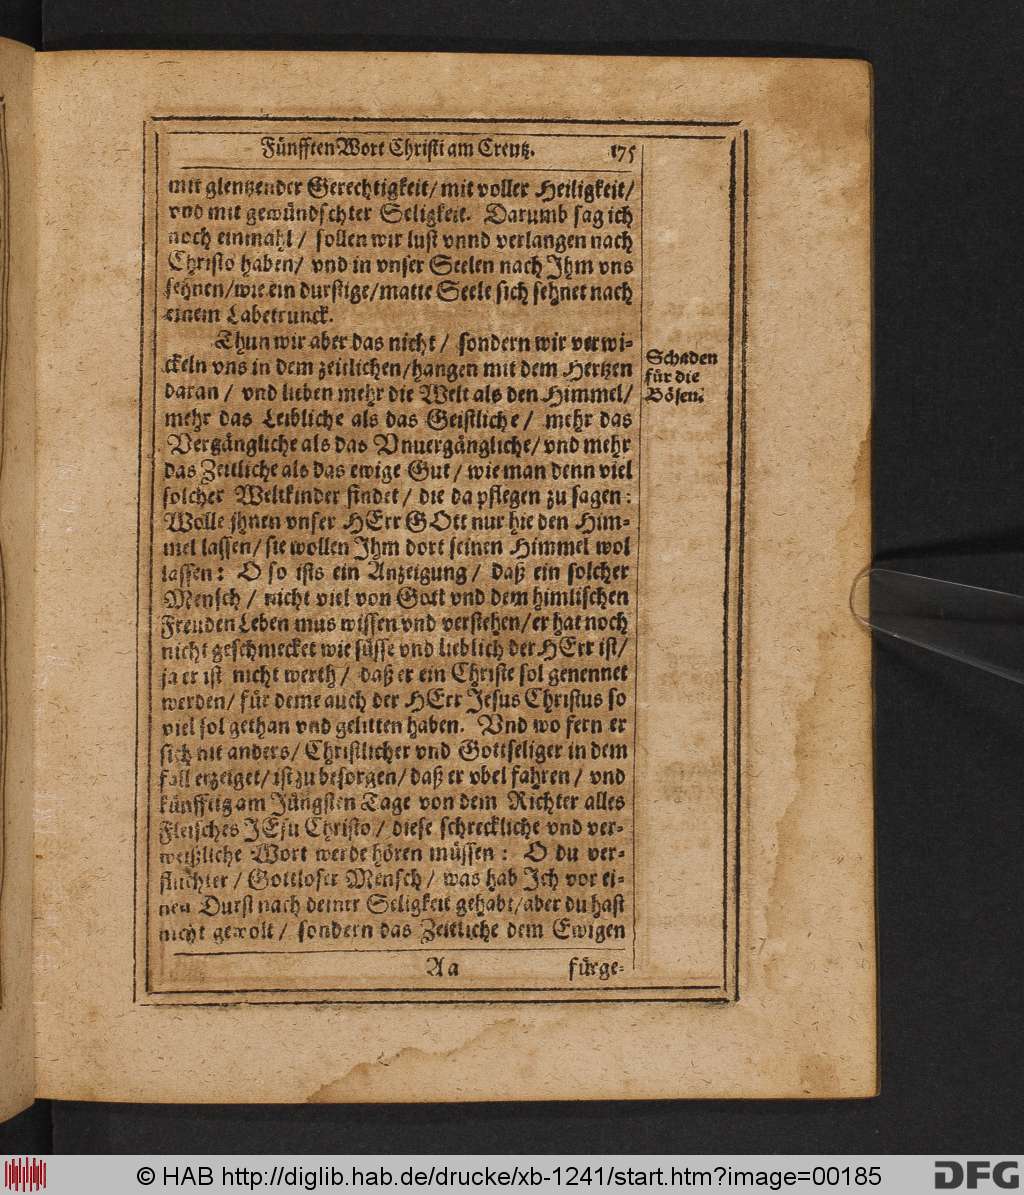 Fünfften Wort Christi am Creutz. 175
mit glentzender Gerechtigkeit/ mit voller Heiligkeit/
vnd mit gewündschter Seligkeit. Darumb sag ich
noch einmahl / sollen wir lust vnnd verlangen nach
Christo haben/ vnd in vnser Seelen nach Ihm vns
sehnen/ wie ein durstige/ matte Seele sich sehnet nach
einem Labetrunck.
Thun wir aber das nicht / sondern wir verwi-
ckeln vns in dem zeitlichen/ hangen mit dem Hertzen
daran / vnd lieben mehr die Welt als den Himmel/
mehr das Leibliche als das Geistliche / mehr das
Vergängliche als das Vnuergängliche/ vnd mehr
das Zeitliche als das ewige Gut / wie man denn viel
solcher Weltkinder findet / die da pflegen zu sagen:
Wolle jhnen vnser HErr GOtt nur hie den Him-
mel lassen/ sie wollen Ihm dort seinen Himmel wol
lassen: O so ists ein Anzeigung / daß ein solcher
Mensch / nicht viel von Gott vnd dem himlischen
Freuden Leben mus wissen vnd verstehen/ er hat noch
nicht geschmecket wie süsse vnd lieblich der HErr ist/
ja er ist nicht werth / daß er ein Christe sol genennet
werden/ für deme auch der HErr Jesus Christus so
viel sol gethan vnd gelitten haben. Vnd wo fern er
sich nit anders/ Christlicher vnd Gottseliger in dem
fall erzeiget/ ist zu besorgen/ daß er vbel fahren / vnd
künfftig am Jüngsten Tage von dem Richter alles
Fleisches JEsu Christo / diese schreckliche vnd ver-
weißliche Wort werde hören müssen: O du ver-
fluchter / Gottloser Mensch / was hab Ich vor ei-
nen Durst nach deiner Seligkeit gehabt/ aber du hast
nicht gewolt / sondern das Zeitliche dem Ewigen
Aa fürge-
Schaden
für die
Bösen.
© HAB http://diglib.hab.de/drucke/xb-1241/start.htm?image=00185
DFG